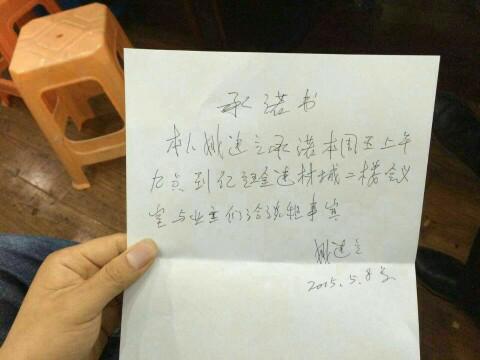 承诺书
本人姚建立承诺本周五上午
九点到红鑫建材城二楼会议
室与业主们洽谈租事宜
姚建立
2015.5.8号